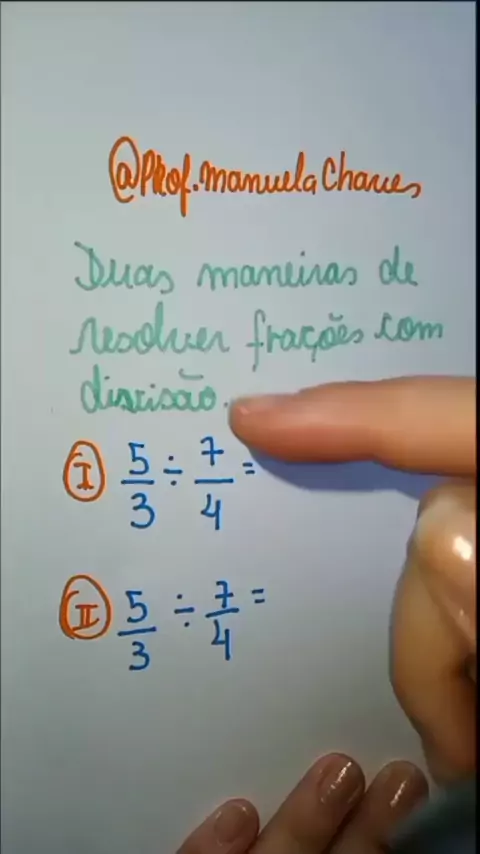 @Prof.manuelaChaves
Duas maneiras de
resolver frações com
divisão.
I 5/3 ÷ 7/4 =
II 5/3 ÷ 7/4 =